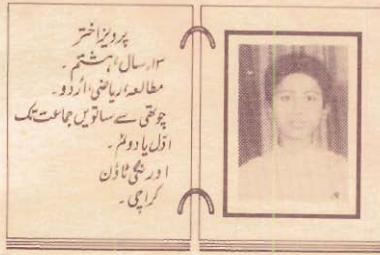 پرویز اختر
۱۳ سال، ہشتم۔
مطالعہ، ریاضی، اُردو۔
چوتھی سے ساتویں جماعت تک
اوّل یا دوئم۔
اورنگی ٹاؤن
کراچی۔